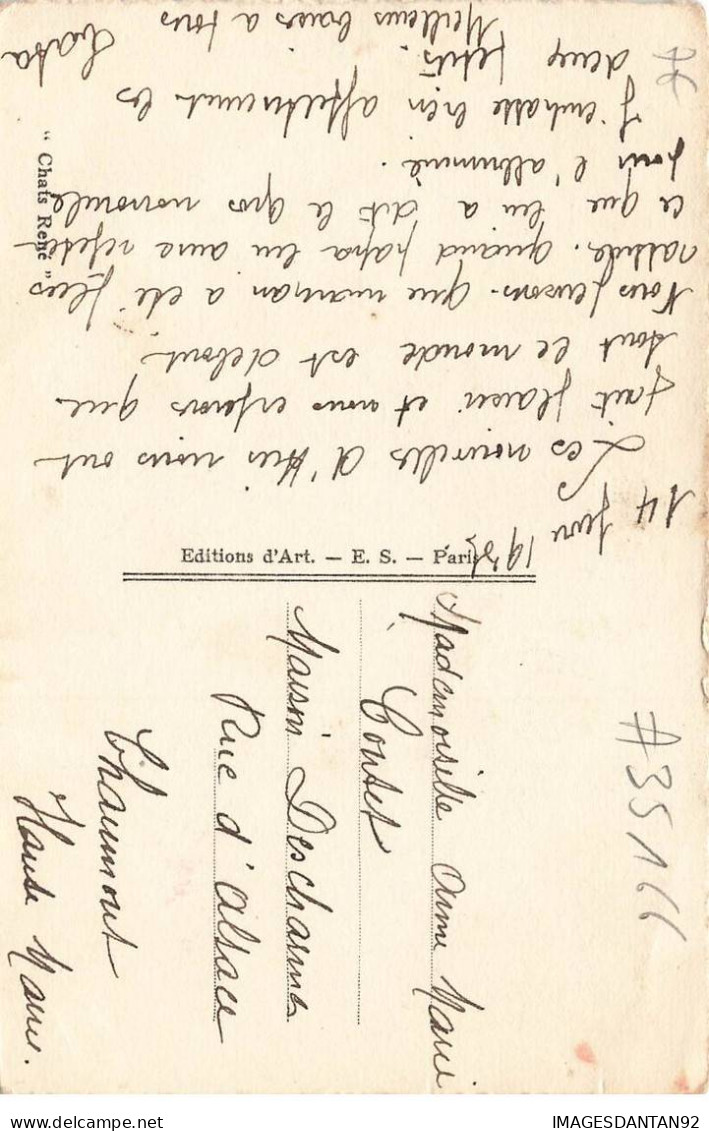 14 Janv 193
Les nouvelles d'hier nous ont
fait plaisir et nous espérons que
tout le monde est debout
Nous pensons que maman a été
rassurée. quand papa lui aura répété
ce que lui a dit le gros
pour l'albumine.
J'embrasse bien affectueusement les
deux petits.
Meilleurs baisers à tous
"Chats René"
Editions d'Art. — E. S. — Paris
Mademoiselle Anne Marie
Contet
Maison Descharmes
Rue d'alsace
Chaumont
Haute Marne.
#35166
IMAGESDANTAN92